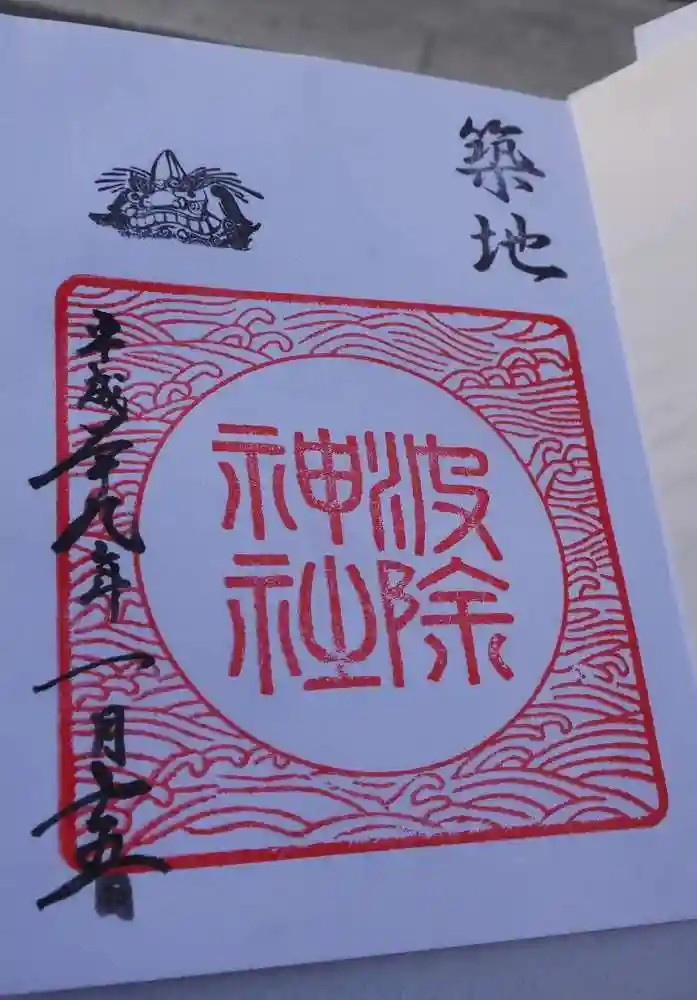 築地
波除
神社
平成二十九年一月十五日